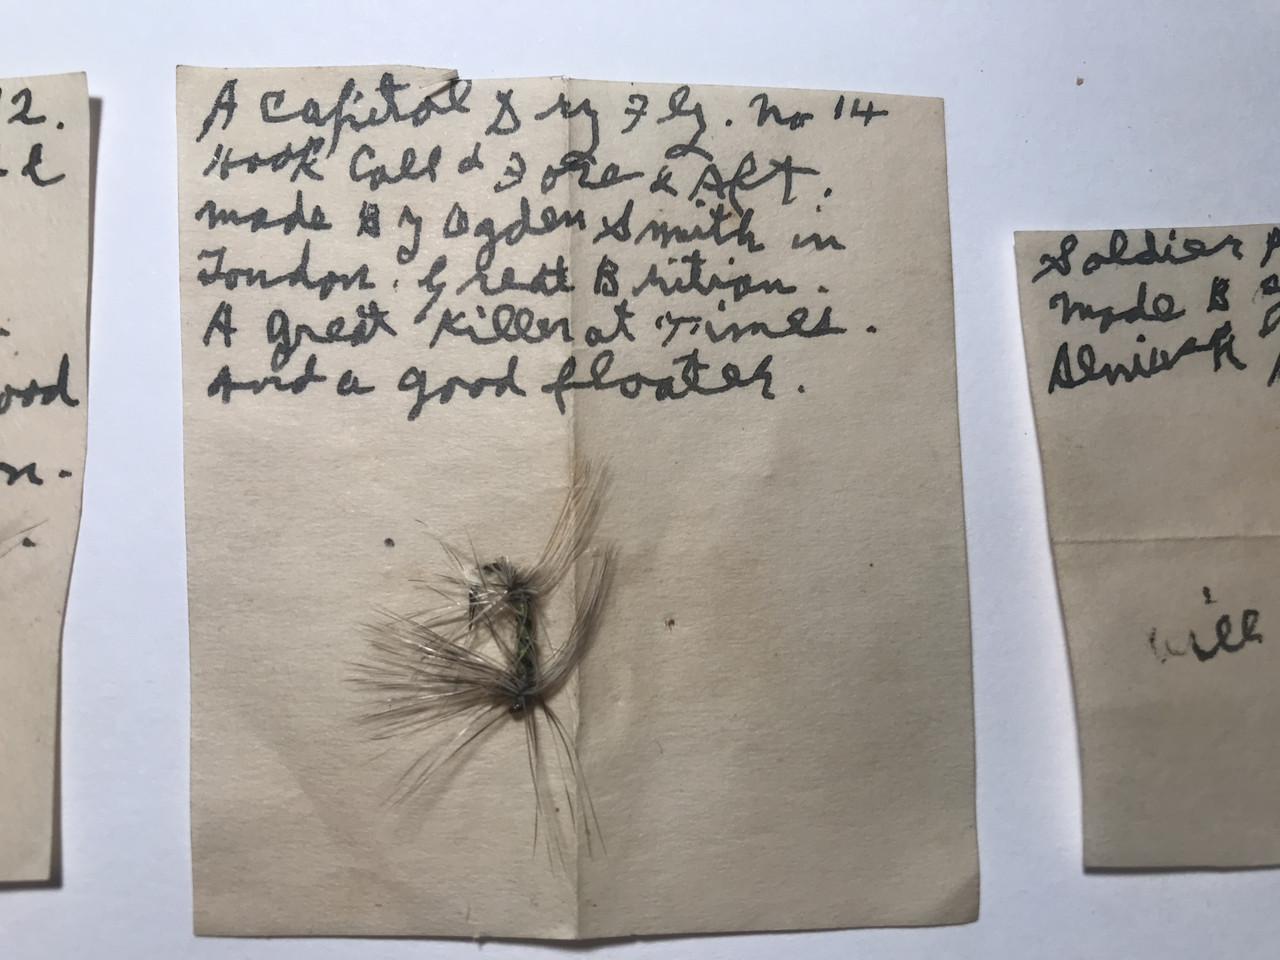 2.
A Capitol Dry Fly. No 14
Hook Call d Fore & Aft.
made By Ogden Smith in
London. Great Brition.
A great Killer at Times.
and a good floater.
ood
n.
Soldier
made B
Alnwick
will